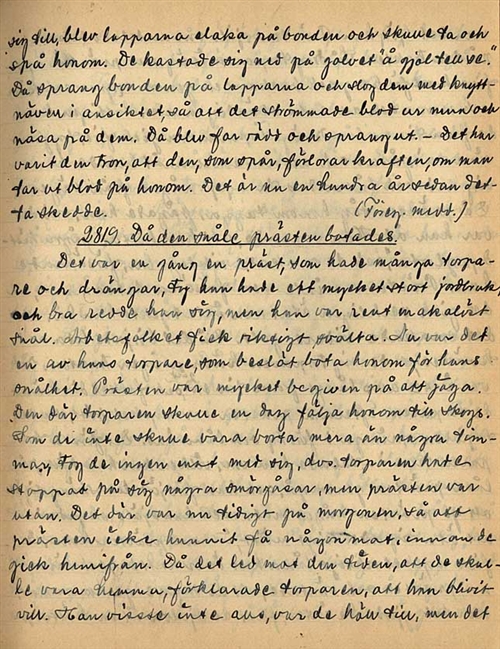 sig till, blev lapparna elaka på bonden och skulle ta och
"spå" honom. De kastade sig ned på golvet "å gjol tell se".
Då sprang bonden på lapparna och slog dem med knytt-
näven i ansiktet, så att det strömmade blod ur mun och
näsa på dem. Då blev far rädd och sprang ut. – Det har
varit den tron, att den, som spår, förlorar kraften, om man
tar ut blod på honom. Det är nu en hundra år sedan det-
ta skedde. (Föreg. medd.)
2819. Då den snåle prästen botades.
Det var en gång en präst, som hade många torpa-
re och drängar, ty han hade ett mycket stort jordbruk,
och bra redde han sig, men han var rent makalöst
snål. Arbetsfolket fick riktigt svälta. Nu var det
en av hans torpare, som beslöt bota honom för hans
snålhet. Prästen var mycket begiven på att jaga.
Den där torparen skulle en dag följa honom till skogs.
Som de inte skulle vara borta mera än några tim-
mar, tog de ingen mat med sig, dvs. torparen hade
stoppat på sig några smörgåsar, men prästen var
utan. Det där var nu tidigt på morgonen, så att
prästen icke hunnit få någon mat, innan de
gick hemifrån. Då det led mot den tiden, att de skul-
le vara hemma, förklarade torparen, att han blivit
vill. Han visste inte alls, var de höll till, men det